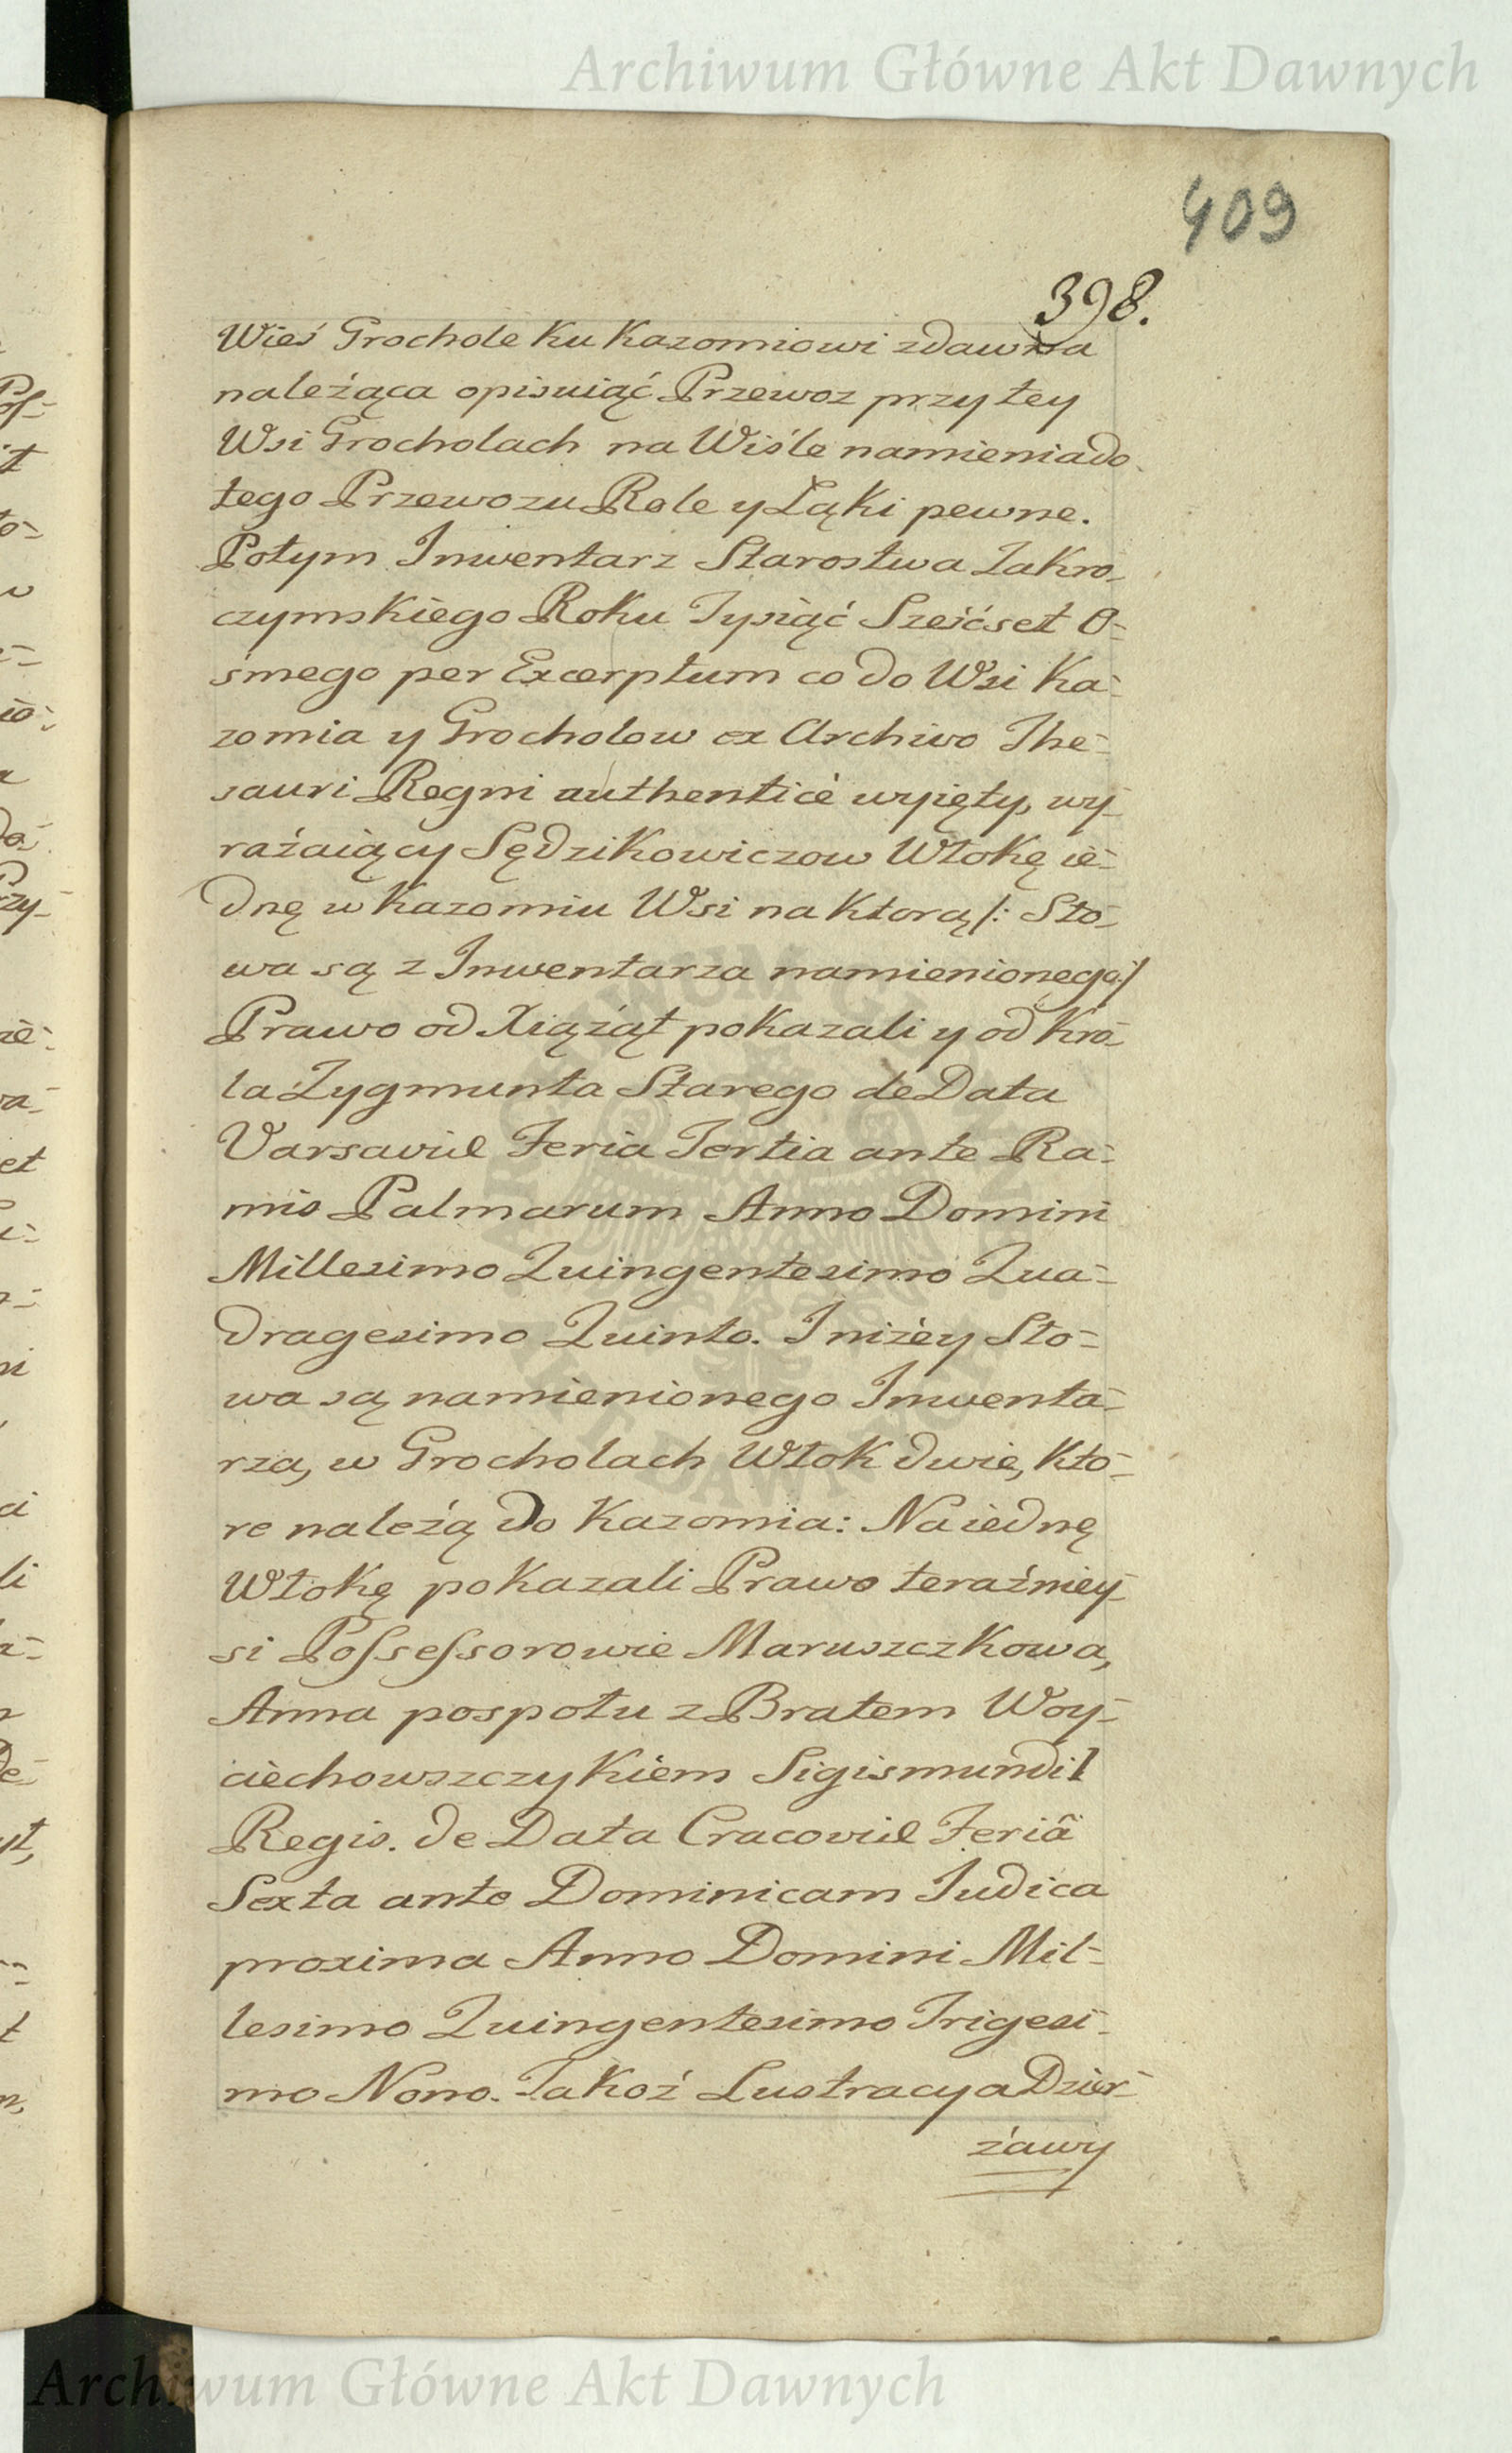 Archiwum Główne Akt Dawnych
409
398.
Wieś Grochole Ku Kazomiowi zdawna
należąca opisuiąć Przewoz przy tey
Wsi Grocholach na Wiśle namienia do
tego Przewozu Role y Łąki pewne.
Potym Inwentarz Starostwa Zakro-
czymskiego Roku Tysiąć Sześćset O-
śmego per Excerptum co do Wsi Ka-
zomia y Grocholow ex Archivo The-
sauri Regni authenticè wyięty, wy-
rażaiący Sędzikowiczow Włokę ie-
dnę w Kazomiu Wsi na Ktorą /: Sło-
wa są z Inwentarza namienionego :/
Prawo od Xiążąt pokazali y od Kro-
la Zygmunta Starego de Data
Varsaviæ Feria Tertia ante Ra-
mis Palmarum Anno Domini
Millesimo Quingentesimo Qua-
dragesimo Quinto. I niżey Sło-
wa są namienionego Inwenta-
rza, w Grocholach Włok dwie, Kto-
re należą do Kazomia: Na iednę
Włokę pokazali Prawo teraźniey-
si Possessorowie Maruszczkowa,
Anna pospołu z Bratem Woy-
ciechowszczykiem Sigismundi 1
Regis. de Data Cracoviæ Feriâ
Sexta ante Dominicam Judica
proxima Anno Domini Mil-
lesimo Quingentesimo Trigesi-
mo Nono. Takoż Lustracya Dzier-
żawy
Archiwum Główne Akt Dawnych